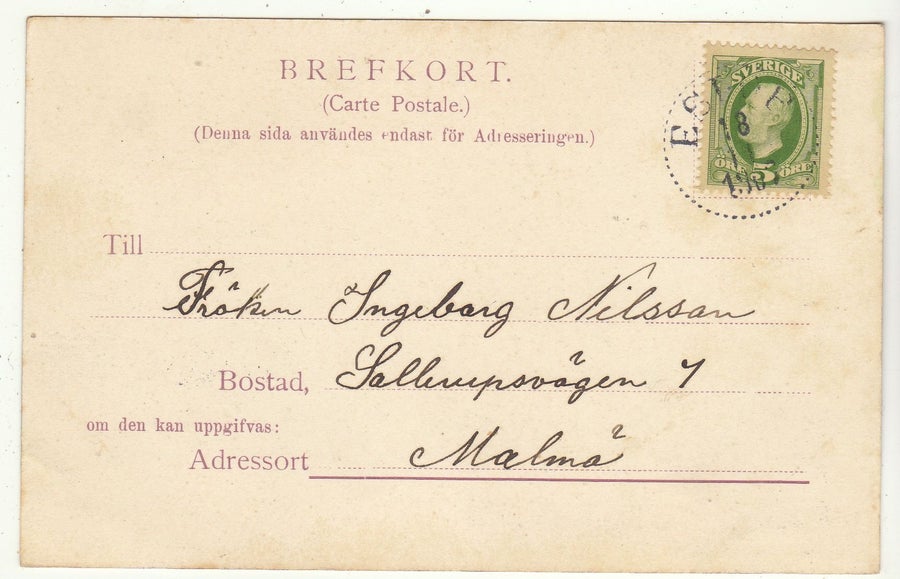 BREFKORT.
(Carte Postale.)
(Denna sida användes endast för Adresseringen.)
SVERIGE
ÖRE 5 ÖRE
Till
Fröken Ingeborg Nilsson
Bostad, Sallerupsvägen 7
om den kan uppgifvas:
Adressort Malmö